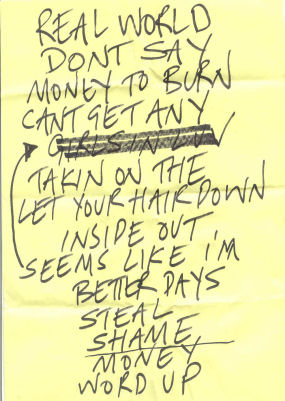 REAL WORLD
DONT SAY
MONEY TO BURN
CANT GET ANY
GIRLS IN LUV
TAKIN ON THE
LET YOUR HAIR DOWN
INSIDE OUT
SEEMS LIKE I'M
BETTER DAYS
STEAL
SHAME
MONEY
WORD UP